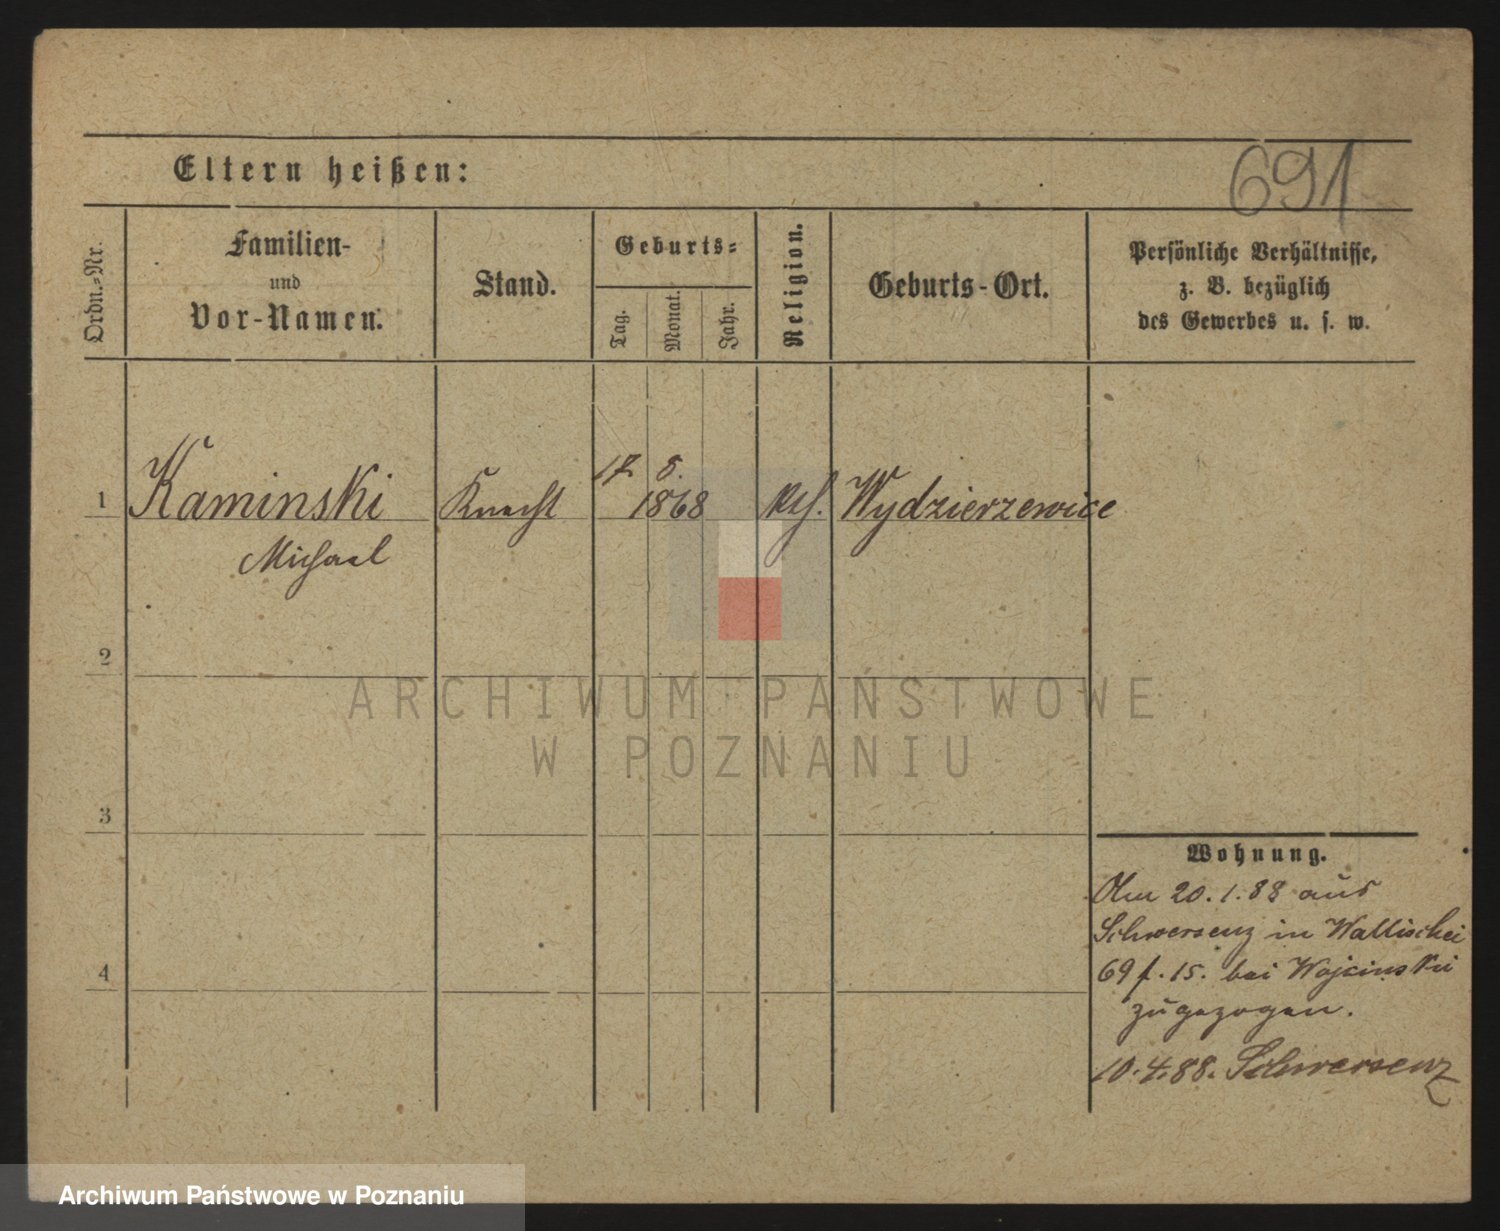 691
Eltern heißen:
Ordn.-Nr.
Familien-
und
Vor-Namen.
Stand.
Geburts-
Tag.
Monat.
Jahr.
Religion.
Geburts-Ort.
Persönliche Verhältnisse,
z. B. bezüglich
des Gewerbes u. s. w.
1 Kaminski Knecht 17. 8. 1868 kth. Wydzierzewice
Michael
2
3
4
ARCHIWUM PAŃSTWOWE
W POZNANIU
Wohnung.
Am 20.1.88 aus
Schwersenz in Wallischei
69 f. 15. bei Wojcinski
zugezogen.
10.4.88. Schwersenz
Archiwum Państwowe w Poznaniu